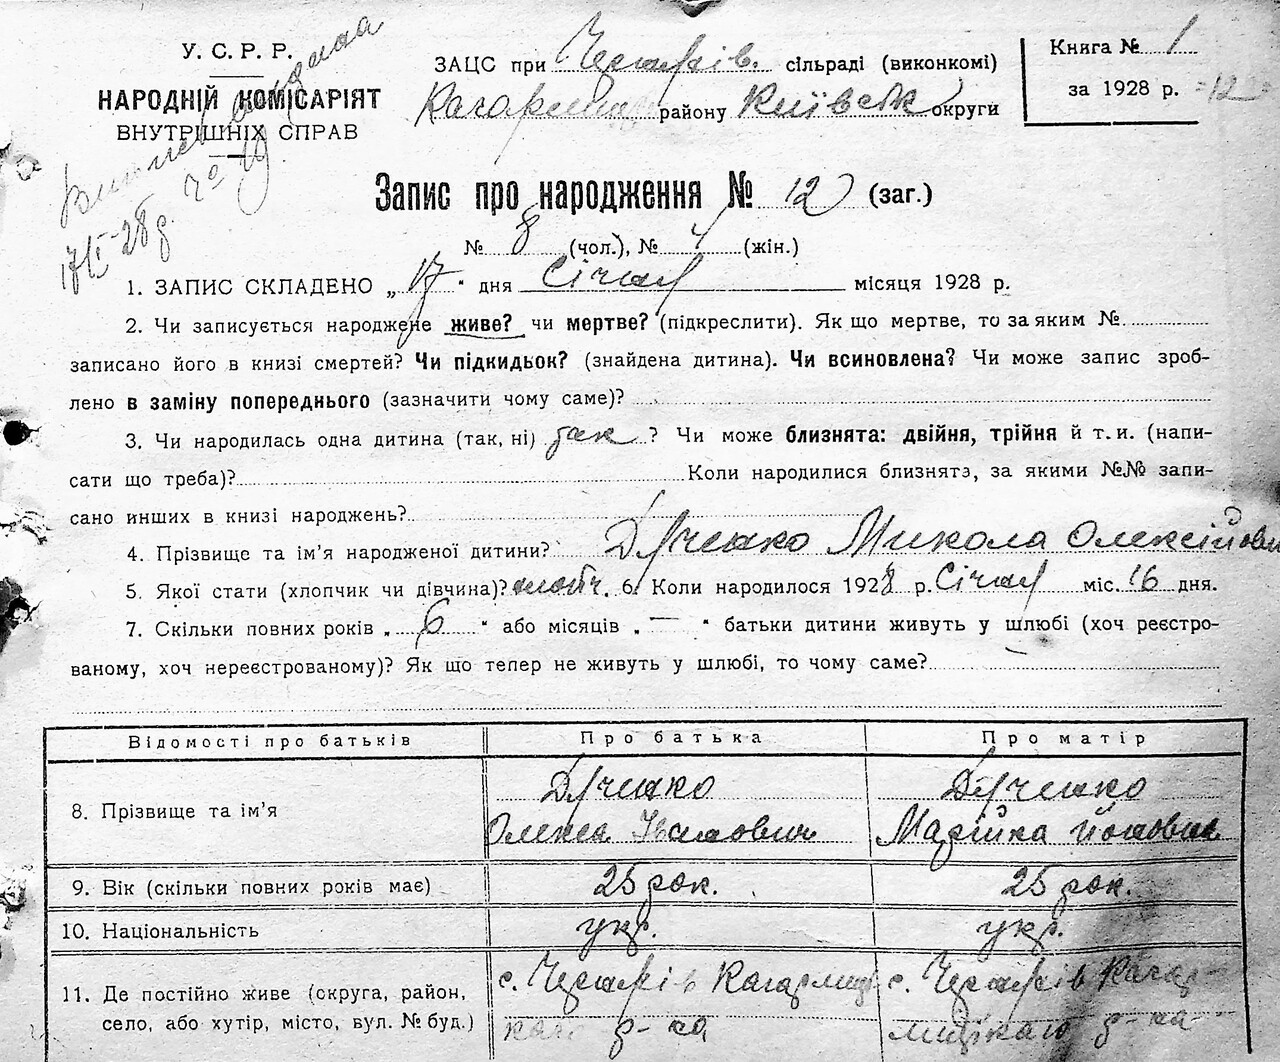 У. С. Р. Р.
НАРОДНІЙ КОМІСАРІЯТ
ВНУТРІШНІХ СПРАВ
17/I-28 р.
ЗАЦС при сільраді (виконкомі)
району Київськ округи
Книга № 1
за 1928 р. =12=
Запис про народження № 12 (заг.)
№ 8 (чол.), № 4 (жін.)
1. ЗАПИС СКЛАДЕНО „17" дня Січня місяця 1928 р.
2. Чи записується народжене живе? чи мертве? (підкреслити). Як що мертве, то за яким №
записано його в книзі смертей? Чи підкидьок? (знайдена дитина). Чи всиновлена? Чи може запис зроб-
лено в заміну попереднього (зазначити чому саме)?
3. Чи народилась одна дитина (так, ні) так? Чи може близнята: двійня, трійня й т. и. (напи-
сати що треба)? Коли народилися близнята, за якими №№ запи-
сано инших в книзі народжень?
4. Прізвище та ім'я народженої дитини? Дученко Микола Олексійович
5. Якої стати (хлопчик чи дівчина)? хлопч. 6. Коли народилося 1928 р. Січня міс. 16 дня.
7. Скільки повних років „6" або місяців „—" батьки дитини живуть у шлюбі (хоч реєстро-
ваному, хоч нереєстрованому)? Як що тепер не живуть у шлюбі, то чому саме?
Відомості про батьків Про батька Про матір
8. Прізвище та ім'я Дученко Олекса Іванович Дученко Марійка
9. Вік (скільки повних років має) 25 рок. 25 рок.
10. Національність укр. укр.
11. Де постійно живе (округа, район, село, або хутір, місто, вул. № буд.) с. р-на с. р-на